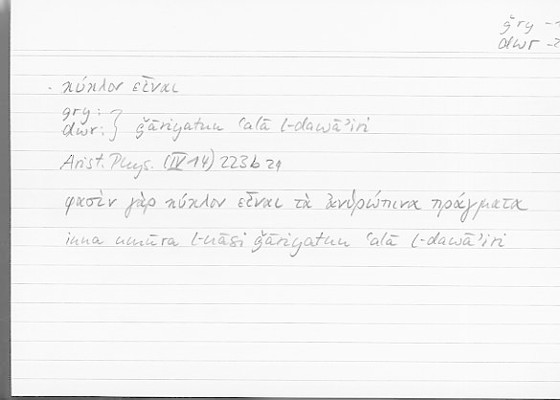 ǧry -
dwr -
· κύκλον εἶναι
ǧry: }
dwr: } ǧāriyatun ʿalā l-dawāʾiri
Arist. Phys. (IV 14) 223b 24
φασὶν γὰρ κύκλον εἶναι τὰ ἀνθρώπινα πράγματα
inna umūra l-nāsi ǧāriyatun ʿalā l-dawāʾiri